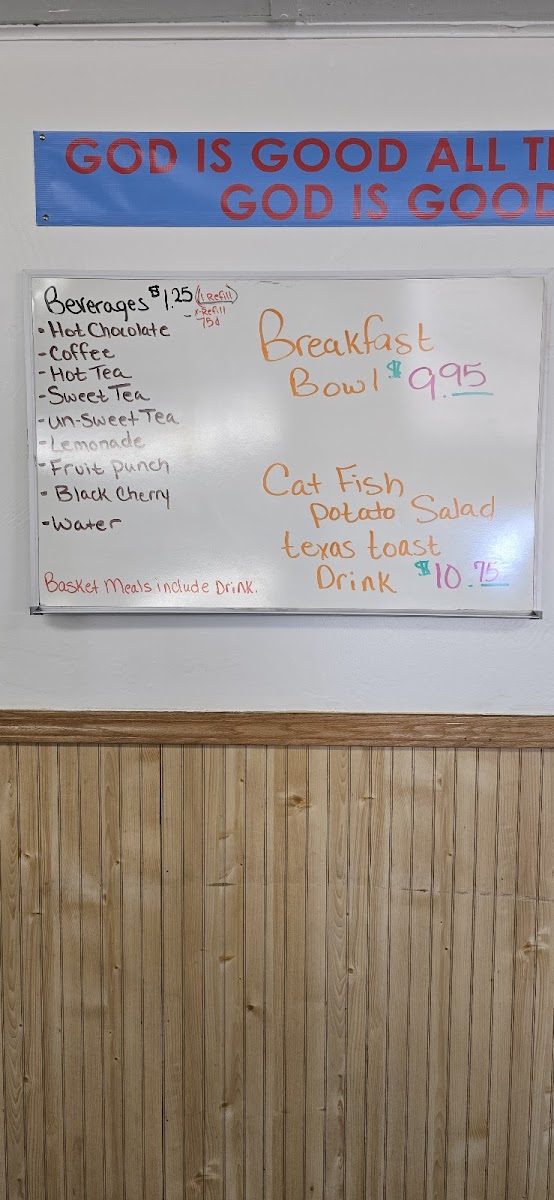 GOD IS GOOD ALL T
GOD IS GOOD
Beverages $1.25 (1 Refill)
- x-Refill
75¢
• Hot Chocolate
- Coffee
- Hot Tea
- Sweet Tea
- un-Sweet Tea
- Lemonade
- Fruit punch
- Black Cherry
- Water
Basket Meals include Drink.
Breakfast
Bowl $9.95
Cat Fish
potato Salad
texas toast
Drink $10.75